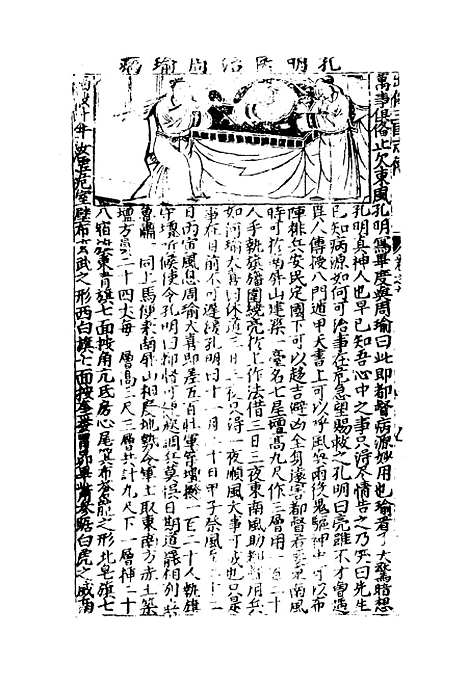 孔明 治周瑜病
萬事俱備止欠東風孔明寫畢度與周瑜曰此即都督病源妙用也瑜看了大驚暗想
孔明真神人也早已知吾心中之事只得尽情告之乃笑曰先生
已知病源如何可治事在危急望賜救之孔明曰亮雖不才曾遇
異人傳授八門遁甲天書上可以呼風喚雨役鬼驅神中可以布
陣排兵安民定國下可以趍吉避凶全身遠害都督若要東南風
時可於南屏山建築一臺名七星壇高九尺作三層用一百二十
人手執旗旛圍繞亮於上作法借三日三夜東南風助都督用兵
如何瑜大喜曰休道三日三夜只得一夜順風大事可成也只是
事在目前不可遲緩孔明曰十一月二十日甲子祭風至二十二
日丙寅風息如何周瑜大喜即差五百壯軍 壇撥一百二十人執旗
守壇听候使令孔明曰都督可 調兵莫悞日期道罷相別
魯肅 同上馬 來南屏山相度地勢令軍士取東南方赤土築
壇方員二十四丈每一層高三尺三層共計九尺下一層揷二十
八宿旗東青旗七面按角亢氐房心尾箕布蒼龍之形北皂旗七
面按斗牛女虛危室壁布玄武之形西白旗七面按奎婁胃昴畢觜參踞白虎之威南